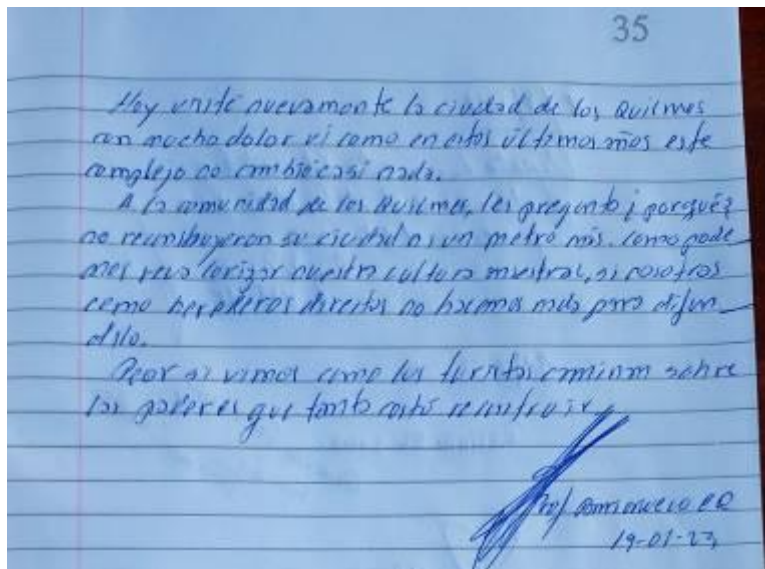 35
Hoy visité nuevamente la ciudad de los Quilmes
con mucho dolor vi como en estos últimos años este
complejo no cambió casi nada.
A la comunidad de los Quilmes, les pregunto ¿porqué?
no reconstruyeron su ciudad ni un metro más. Como pode
mos revalorizar nuestra cultura ancestral, si nosotros
como herederos directos no hacemos más para difun
dirlo.
Peor si vemos como los turistas caminan sobre
las paredes que tanto costó reconstruir.
Prof.
19-01-23